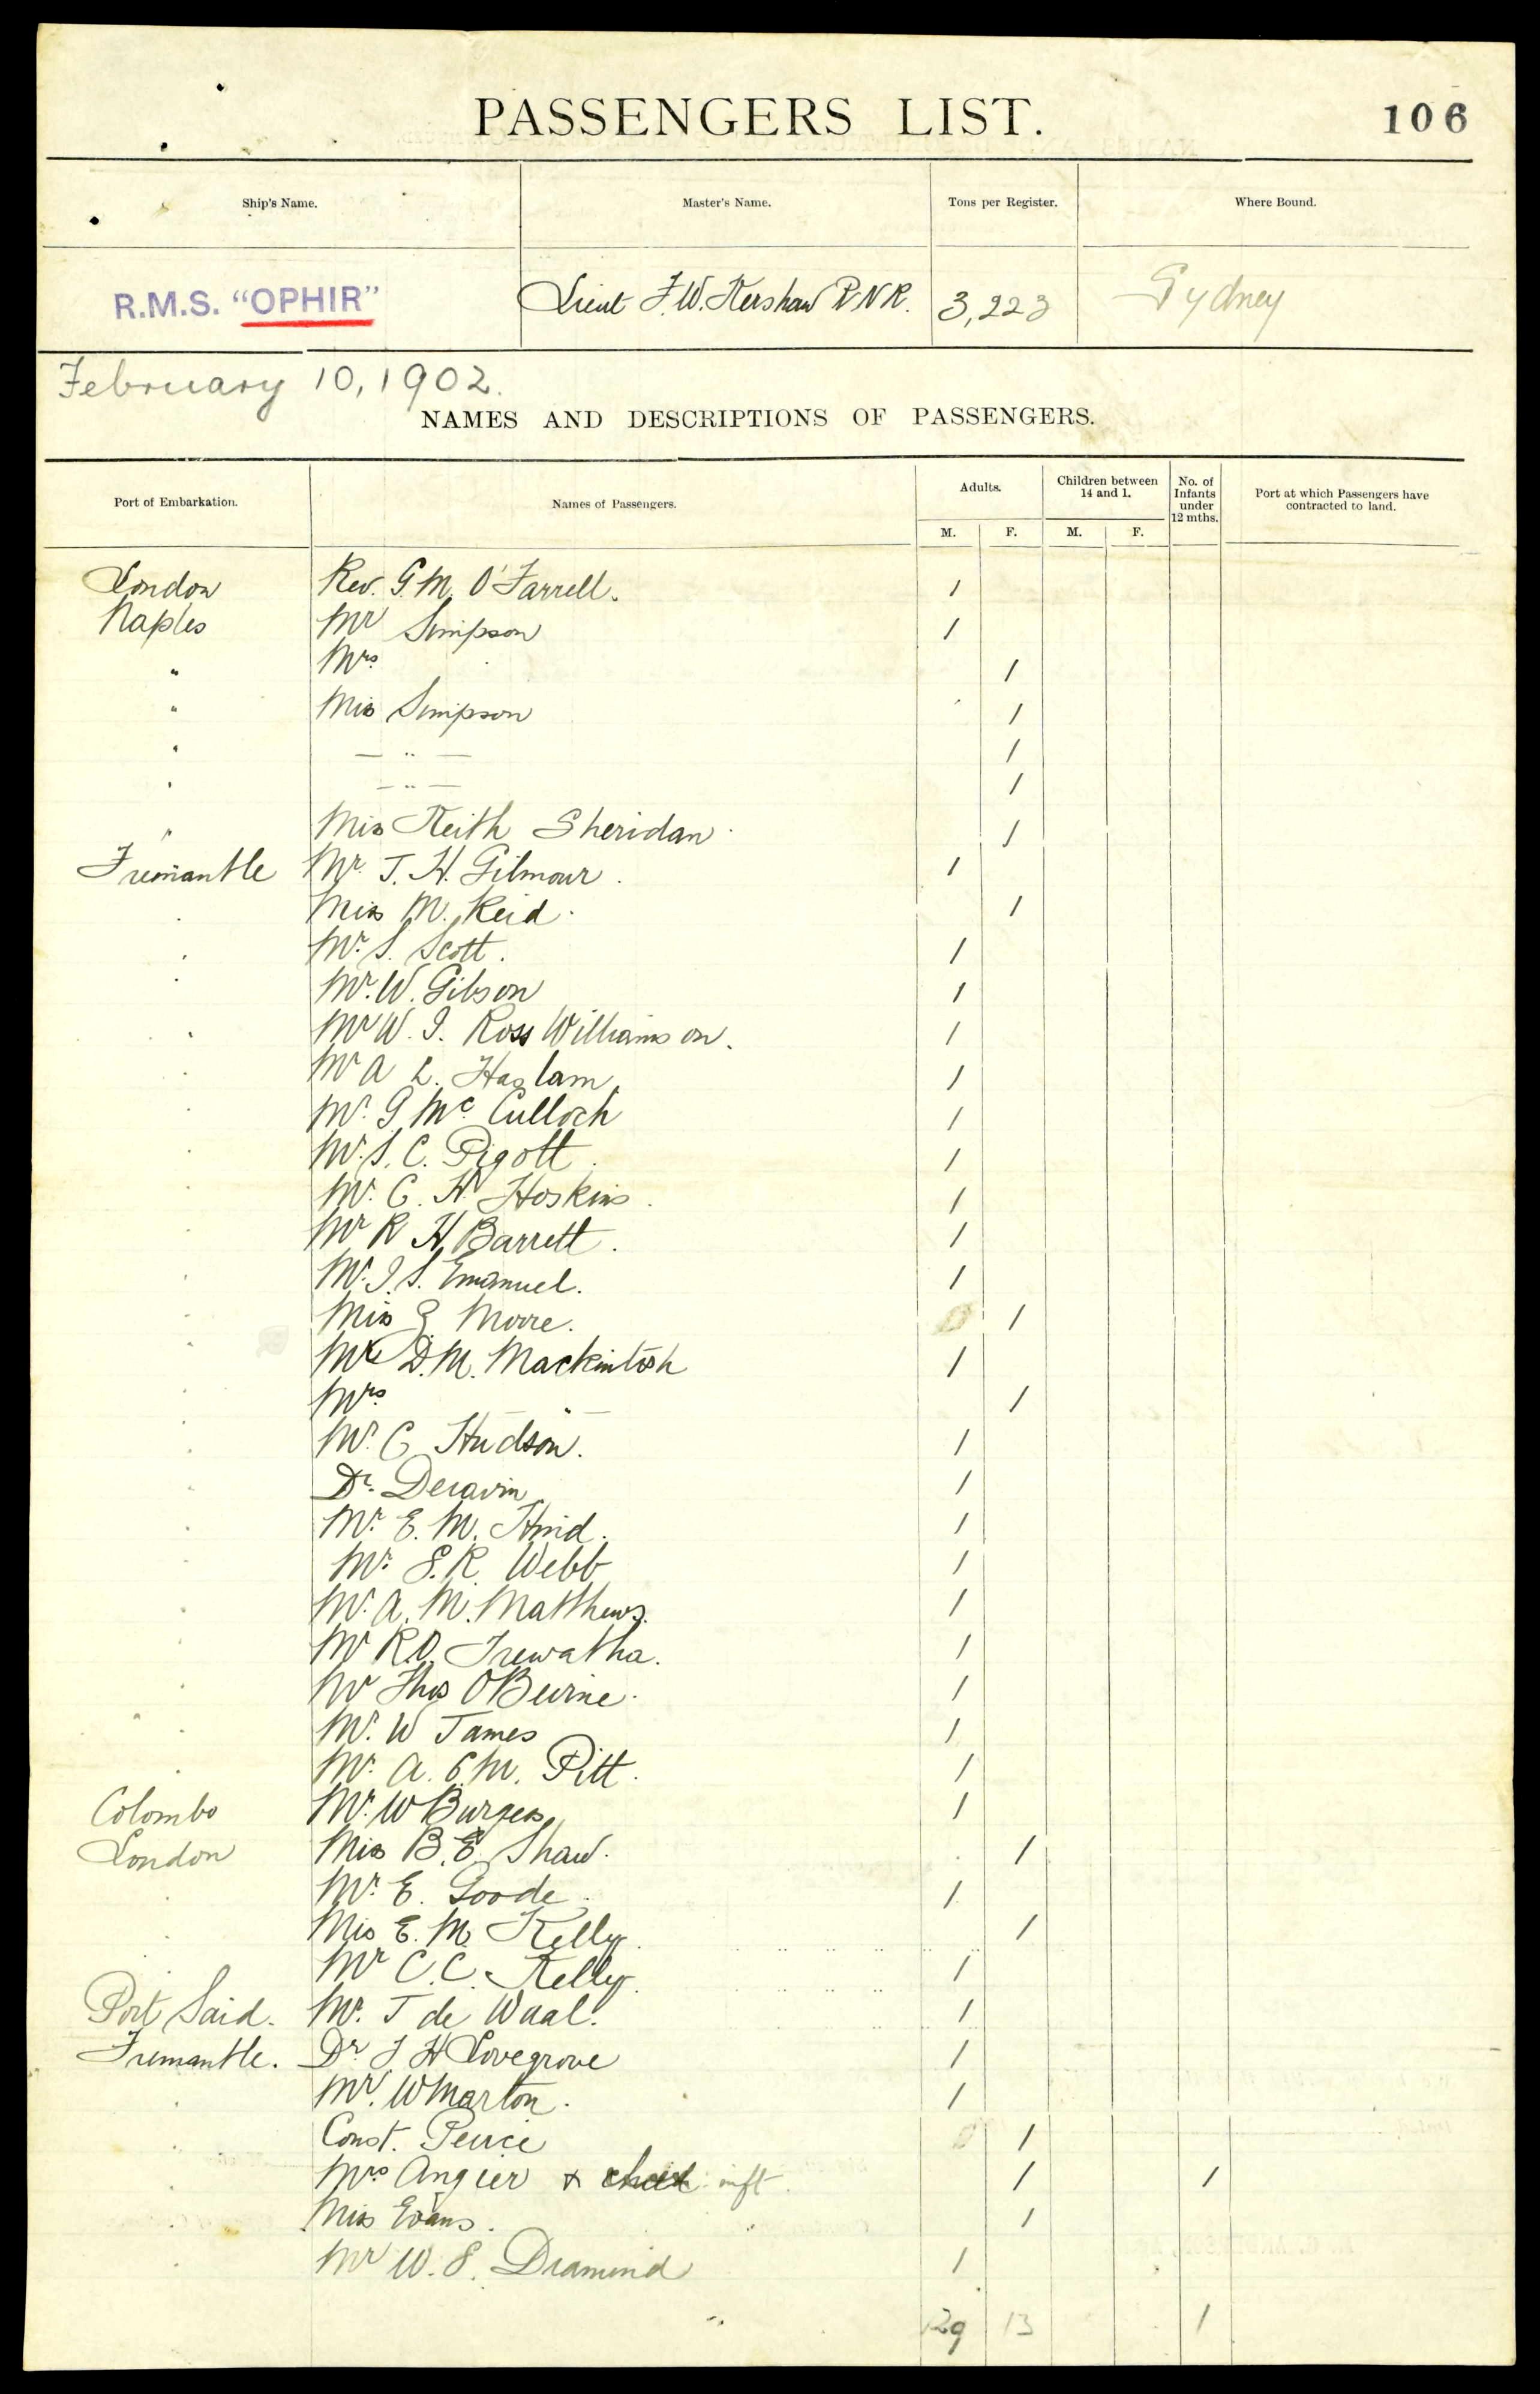 PASSENGERS LIST.
106
Ship's Name. Master's Name. Tons per Register. Where Bound.
R.M.S. "OPHIR" Lieut F.W. Kershaw R.N.R. 3,223 Sydney
February 10, 1902.
NAMES AND DESCRIPTIONS OF PASSENGERS.
Port of Embarkation. Names of Passengers. Adults. Children between 14 and 1. No. of Infants under 12 mths. Port at which Passengers have contracted to land.
M. F. M. F.
London Rev. G.M. O'Farrell. 1
Naples Mr Simpson 1
" Mrs 1
" Miss Simpson 1
" — " — 1
" — " — 1
" Miss Keith Sheridan 1
Fremantle Mr. J. H. Gilmour. 1
" Miss M. Reid. 1
" Mr. S. Scott. 1
" Mr. W. Gibson 1
" Mr W. I. Ross Williamson. 1
" Mr A L. Haslam 1
" Mr. G Mc Culloch 1
" Mr. S. C. Pigott 1
" Mr. C. H. Hoskins. 1
" Mr R H Barrett. 1
" Mr. I. S. Emanuel. 1
" Miss Moore. 1
" Mr D.M. Mackintosh 1
" Mrs — " — 1
" Mr. C Hudson. 1
" Dr. Deravin 1
" Mr. E. M. Hind. 1
" Mr. S. R. Webb 1
" Mr. A. M. Matthews. 1
" Mr R.O. Trewatha. 1
" Mr Thos O'Beirne. 1
" Mr. W James 1
" Mr. A. C. M. Pitt. 1
Colombo Mr. W Burgess 1
London Miss B. E. Shaw. 1
" Mr. E. Goode. 1
" Miss E. M. Kelly. 1
" Mr C. C. Kelly. 1
Port Said. Mr. J de Waal. 1
Fremantle. Dr. J H Lovegrove 1
" Mr. Wharton. 1
" Const. Peirce 1
" Mrs Angier & inft. 1 1
" Miss Evans. 1
" Mr W. S. Diamond 1
29 13 1